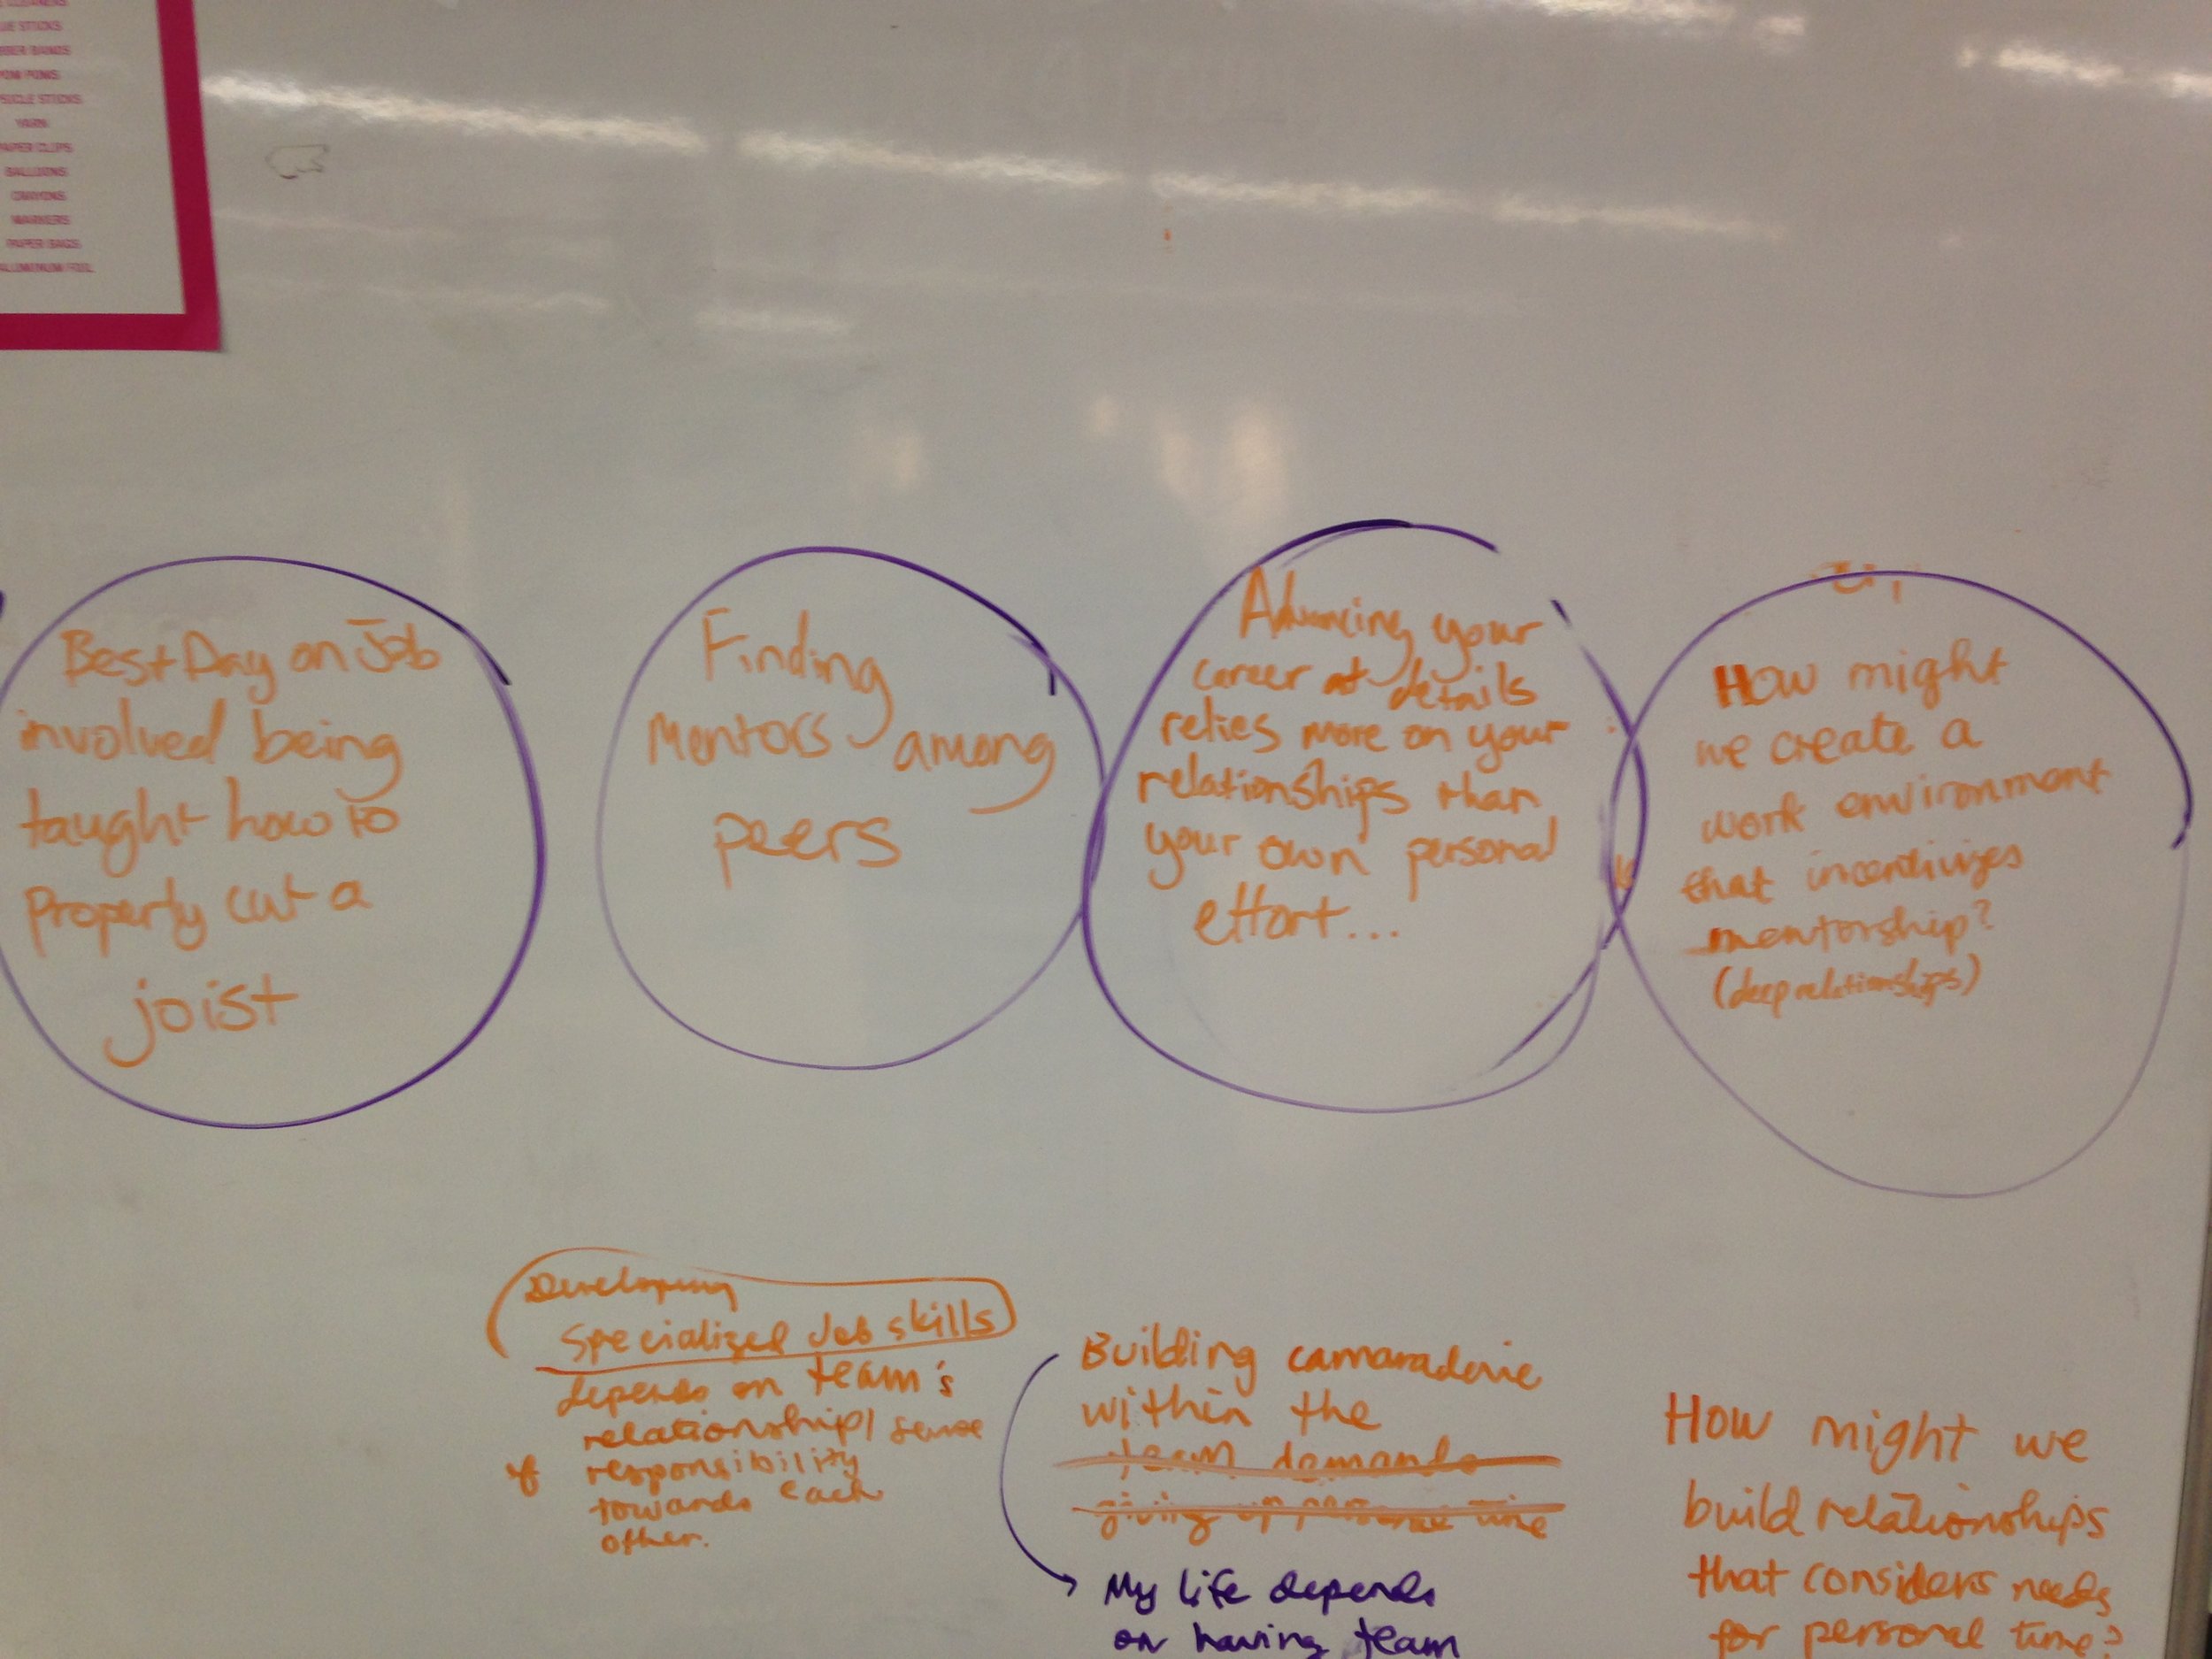 CLEANERS
UE STICKS
BBER BANDS
POM POMS
SICLE STICKS
YARN
PAPER CLIPS
BALLOONS
CRAYONS
MARKERS
PAPER BAGS
ALUMINUM FOIL
Best Day on Job
involved being
taught how to
Properly cut a
joist
Finding
Mentors among
peers
Advancing your
career at details
relies more on your
relationships than
your own personal
effort...
How might
we create a
work environment
that incentivizes
mentorship?
(deep relationships)
Developing
Specialized Job skills
depends on team's
relationship/ sense
of responsibility
towards each
other.
Building camaraderie
within the
team demands
giving up personal time
My life depends
on having team
How might we
build relationships
that considers needs
for personal time?